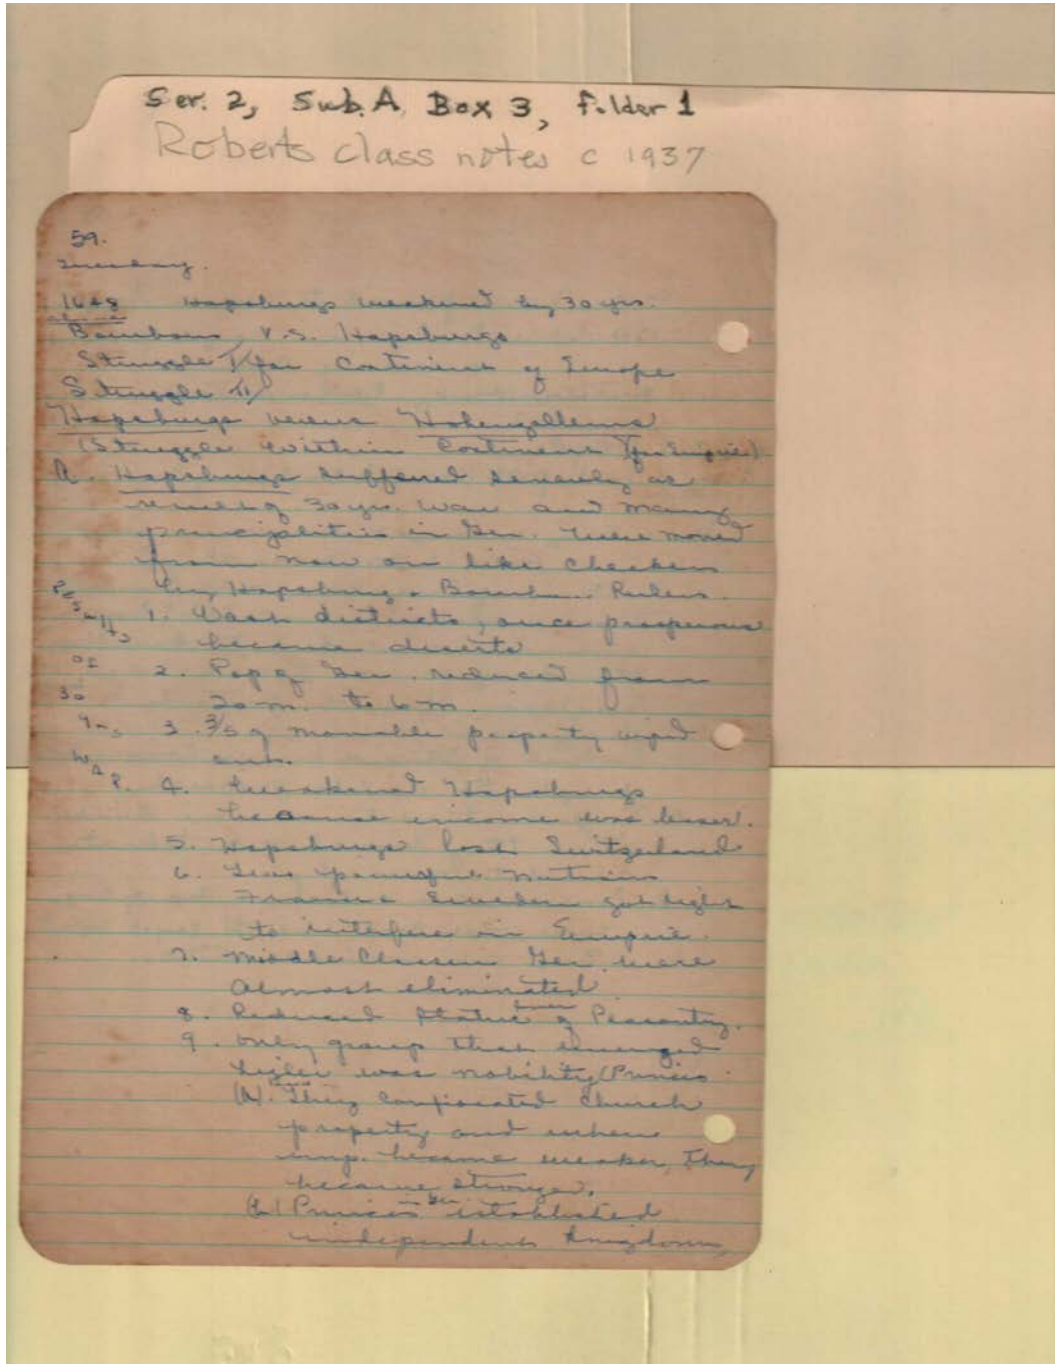 Ser. 2, Sub. A, Box 3, Folder 1
Roberts class notes c 1937
59.
Tuesday.
1648 Hapsburgs weakened by 30 yrs.
Bourbons V.S. Hapsburgs
Struggle I for Continent of Europe
Struggle II
Hapsburgs versus Hohenzollerns
(Struggle within Continent (for Empire)
A. Hapsburgs suffered severely as
result of 30 yrs. War and many
principalities in Ger. were moved
from now on like checkers
by Hapsburg + Bourbon Rulers.
Results of 30 yrs WAR.
1. Vast districts, once prosperous
became deserts
2. Pop of Ger. reduced from
20 m. to 6 m.
3. 3/5 of movable property wiped
out.
4. Weakened Hapsburgs
because income was lesser.
5. Hapsburgs lost Switzerland
6. Two powerful Nations
France + Sweden got right
to interfere in Empire.
7. Middle Classes Ger. were
almost eliminated.
8. Reduced status of Peasantry.
9. Only group that emerged
higher was nobility (Princes
(A). They confiscated Church
property and when
emp. became weaker, they
became stronger.
(b) Princes in Ger. established
independent kingdoms